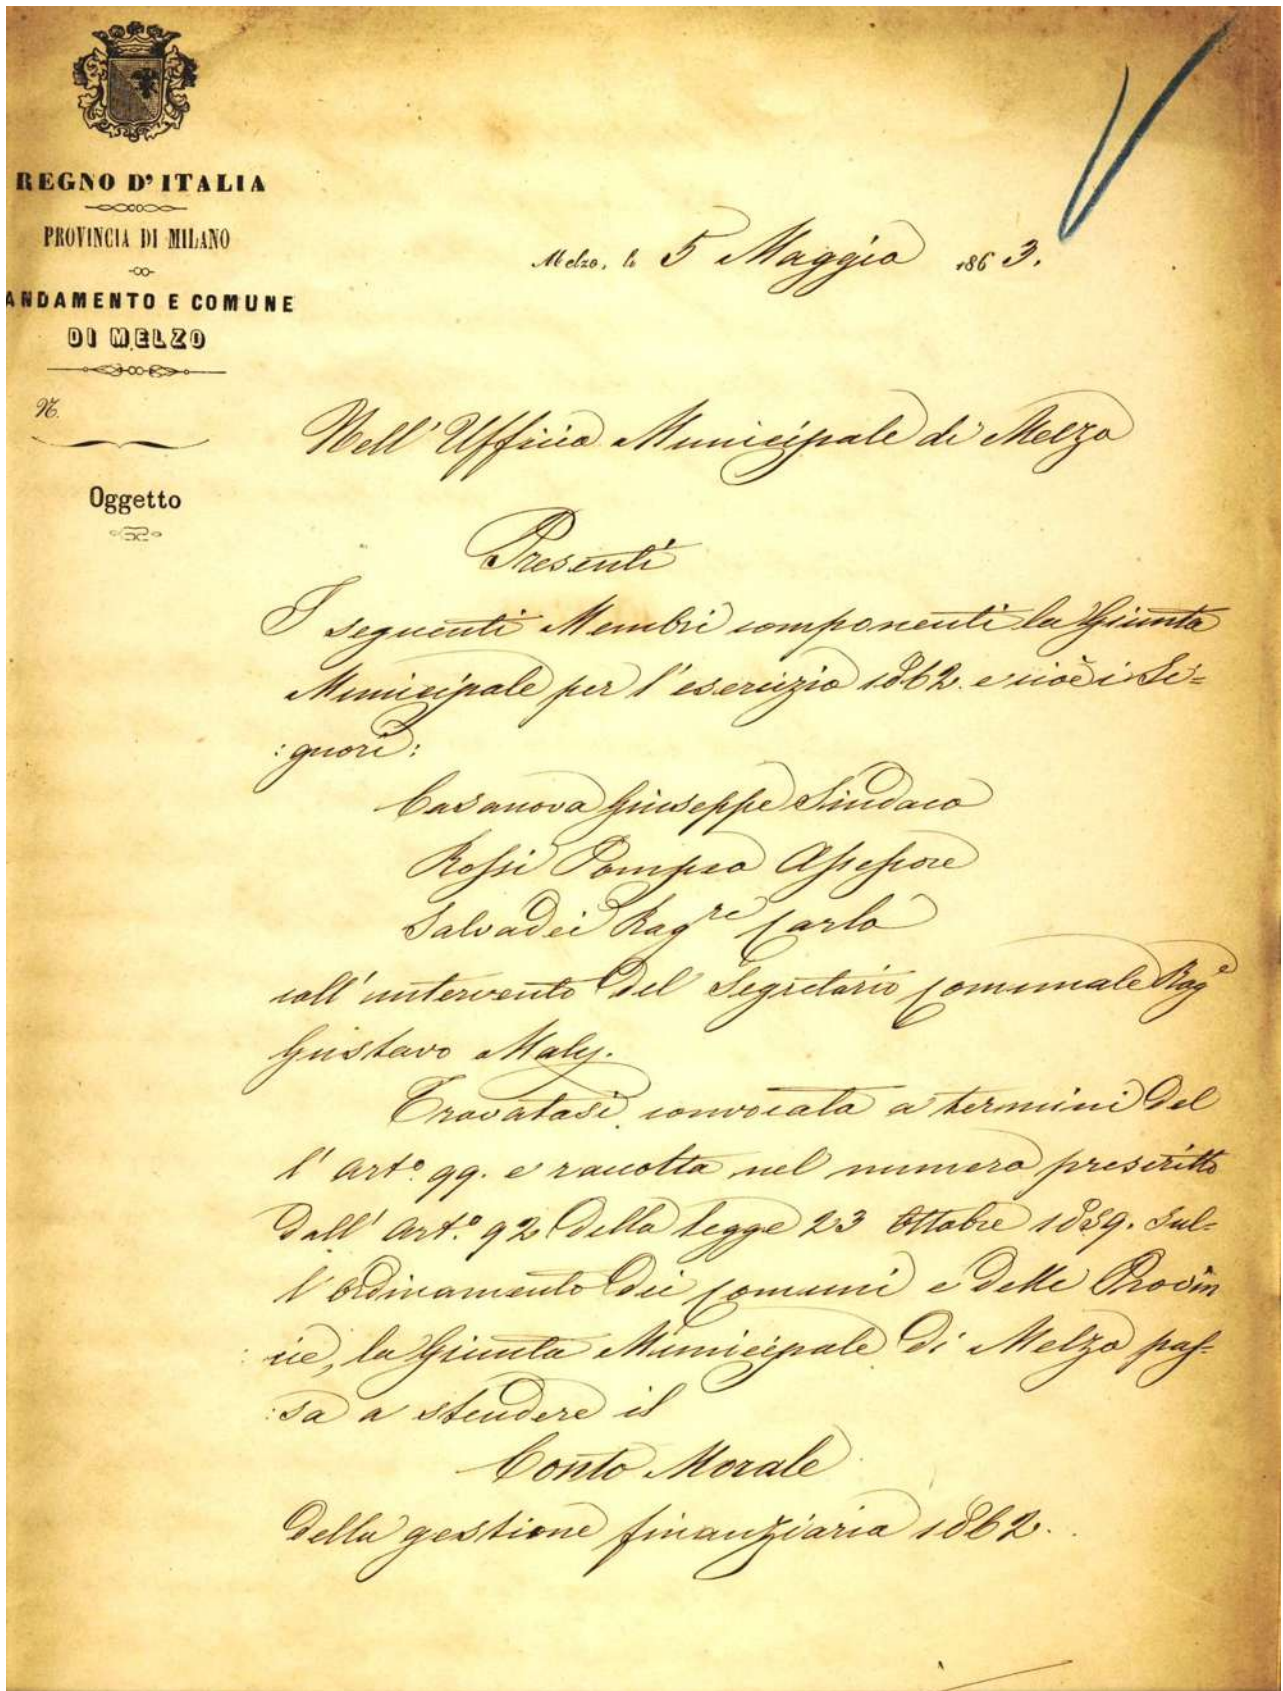 REGNO D'ITALIA
PROVINCIA DI MILANO
ANDAMENTO E COMUNE
DI MELZO
N.
Oggetto
Melzo, le 5 Maggio 1863.
Nell' Ufficio Municipale di Melzo
Presenti
I seguenti Membri componenti la Giunta
Municipale per l'esercizio 1862. e cioè i Si=
:gnori:
Casanova Giuseppe Sindaco
Rossi Pompeo Assessore
Salvadei Rag.re Carlo
coll' intervento del Segretario Comunale Rag.e
Gustavo Maly.
Trovatasi convocata a termini del
l' Art.º 99. e raccolta nel numero prescritto
dall' Art.º 92 della legge 23 Ottobre 1859. sul=
l'Ordinamento dei Comuni e delle Provin
:cie, la Giunta Municipale di Melzo pas=
:sa a stendere il
Conto Morale
della gestione finanziaria 1862.